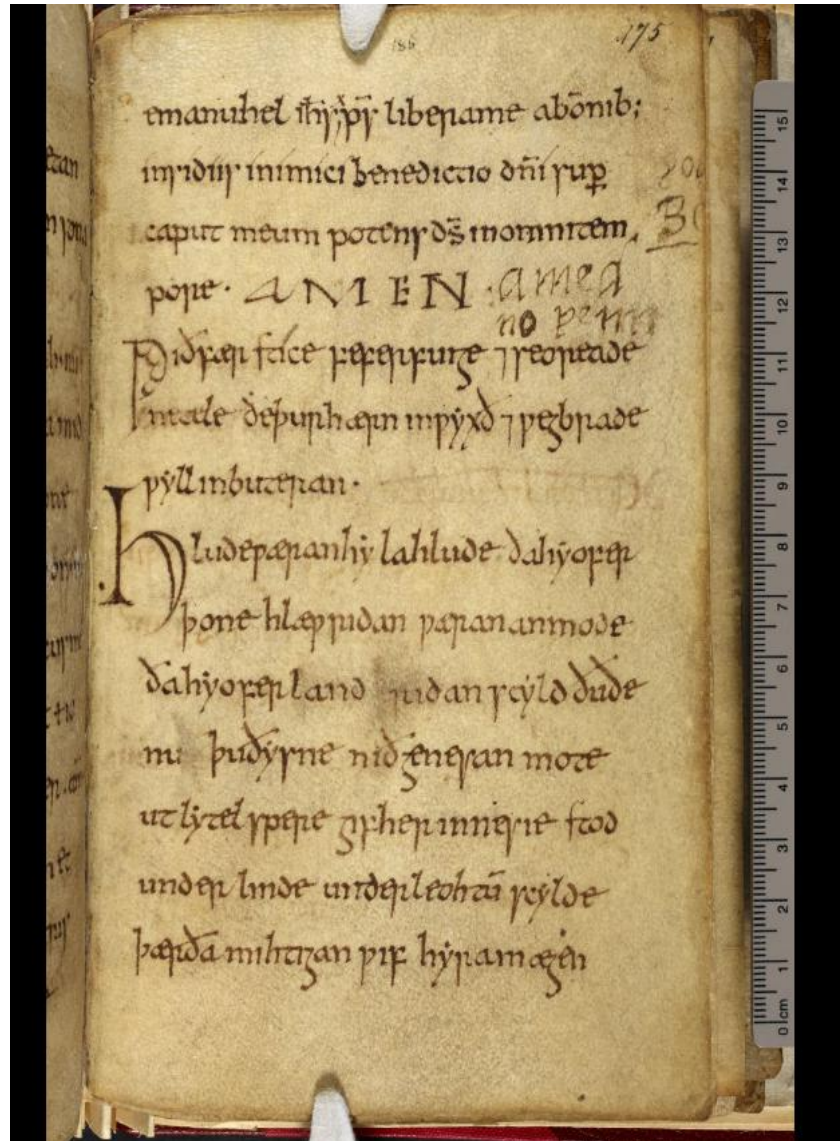 186 175
emanuhel ihs xps libera me ab omib;
insidiis inimici benedictio dñi sup
caput meum potens ds in omni tem
pore. AMEN. amea
no penn
Ƿið fær stice feferfuige ⁊ seo reade
netele ðe þurh ærn inƿyxð ⁊ ƿegbrade
ƿyll in buteran.
Hlude ƿæran hy la hlude ða hy ofer
þone hlæƿ ridan ƿæran anmode
ða hy ofer land ridan scyld ðu ðe
nu þu ðysne nið genesan mote
ut lytel spere gif her inne sie stod
under linde under leohtū scylde
þær ða mihtigan ƿif hyra mægen
15
14
13
12
11
10
9
8
7
6
5
4
3
2
1
0 cm